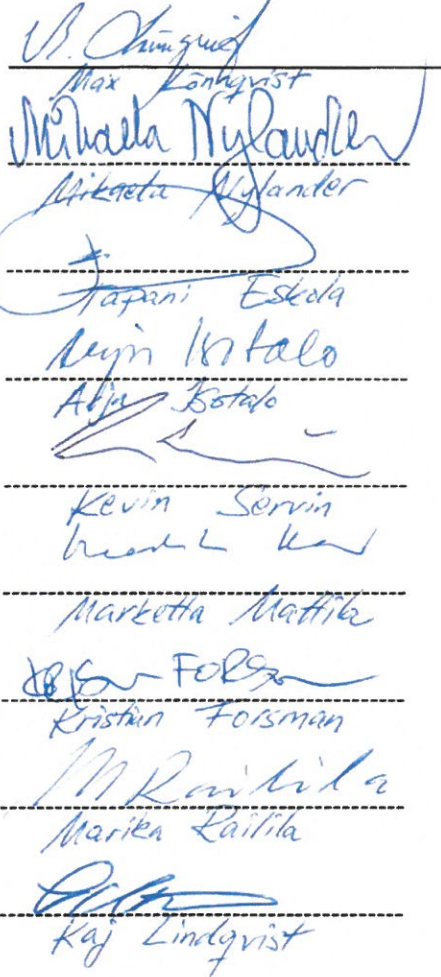 Max Lönnqvist
Mikaela Nylander
Mikaela Nylander
Tapani Eskola
Arja Isotalo
Arja Isotalo
Kevin Servin
Marketta Mattila
FORS
Kristian Forsman
M Railila
Marika Railila
Kaj Lindqvist